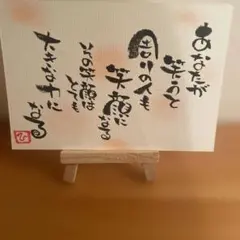 あなたが
笑うと
周りの人も
笑顔に
なる
の笑顔は
とても
大きな力に
なる